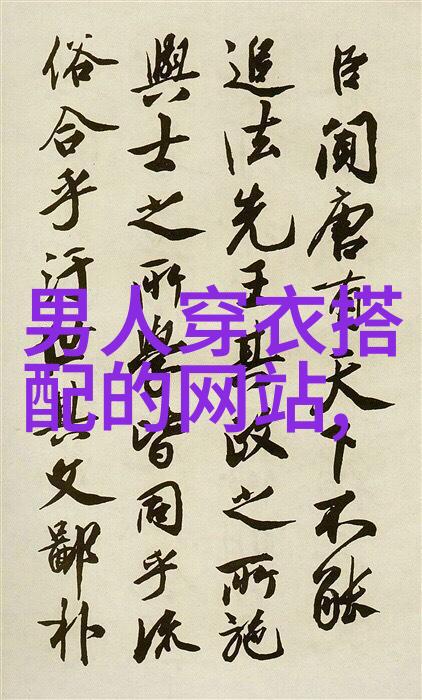 臣聞唐有天下不能
追法先王其政之所施
與士之所學皆同乎流
俗合乎汙世其文鄙朴
男人穿衣搭
配的网站,